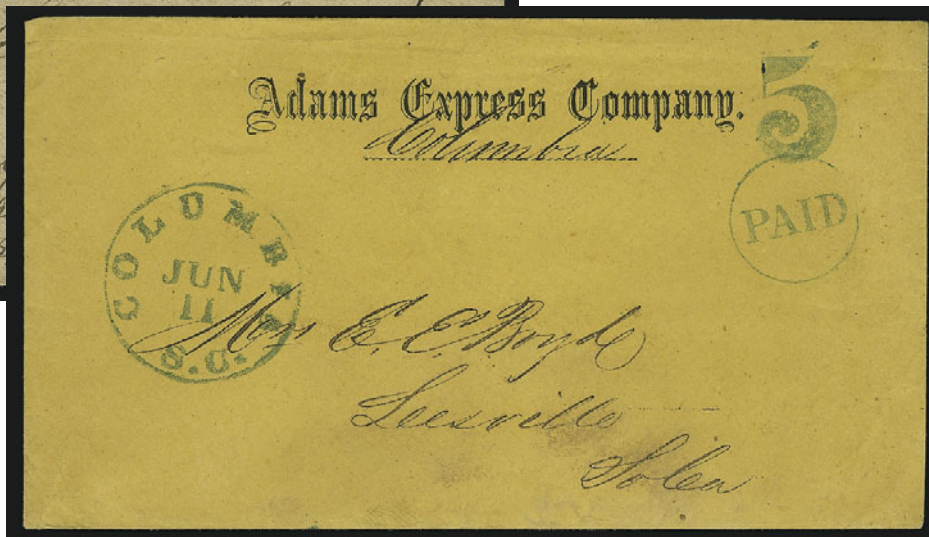 Adams Express Company.
Columbia
5
PAID
COLUMBIA
JUN
11
S.C.
Mrs E. C. Boyd
Leesville
So Ca